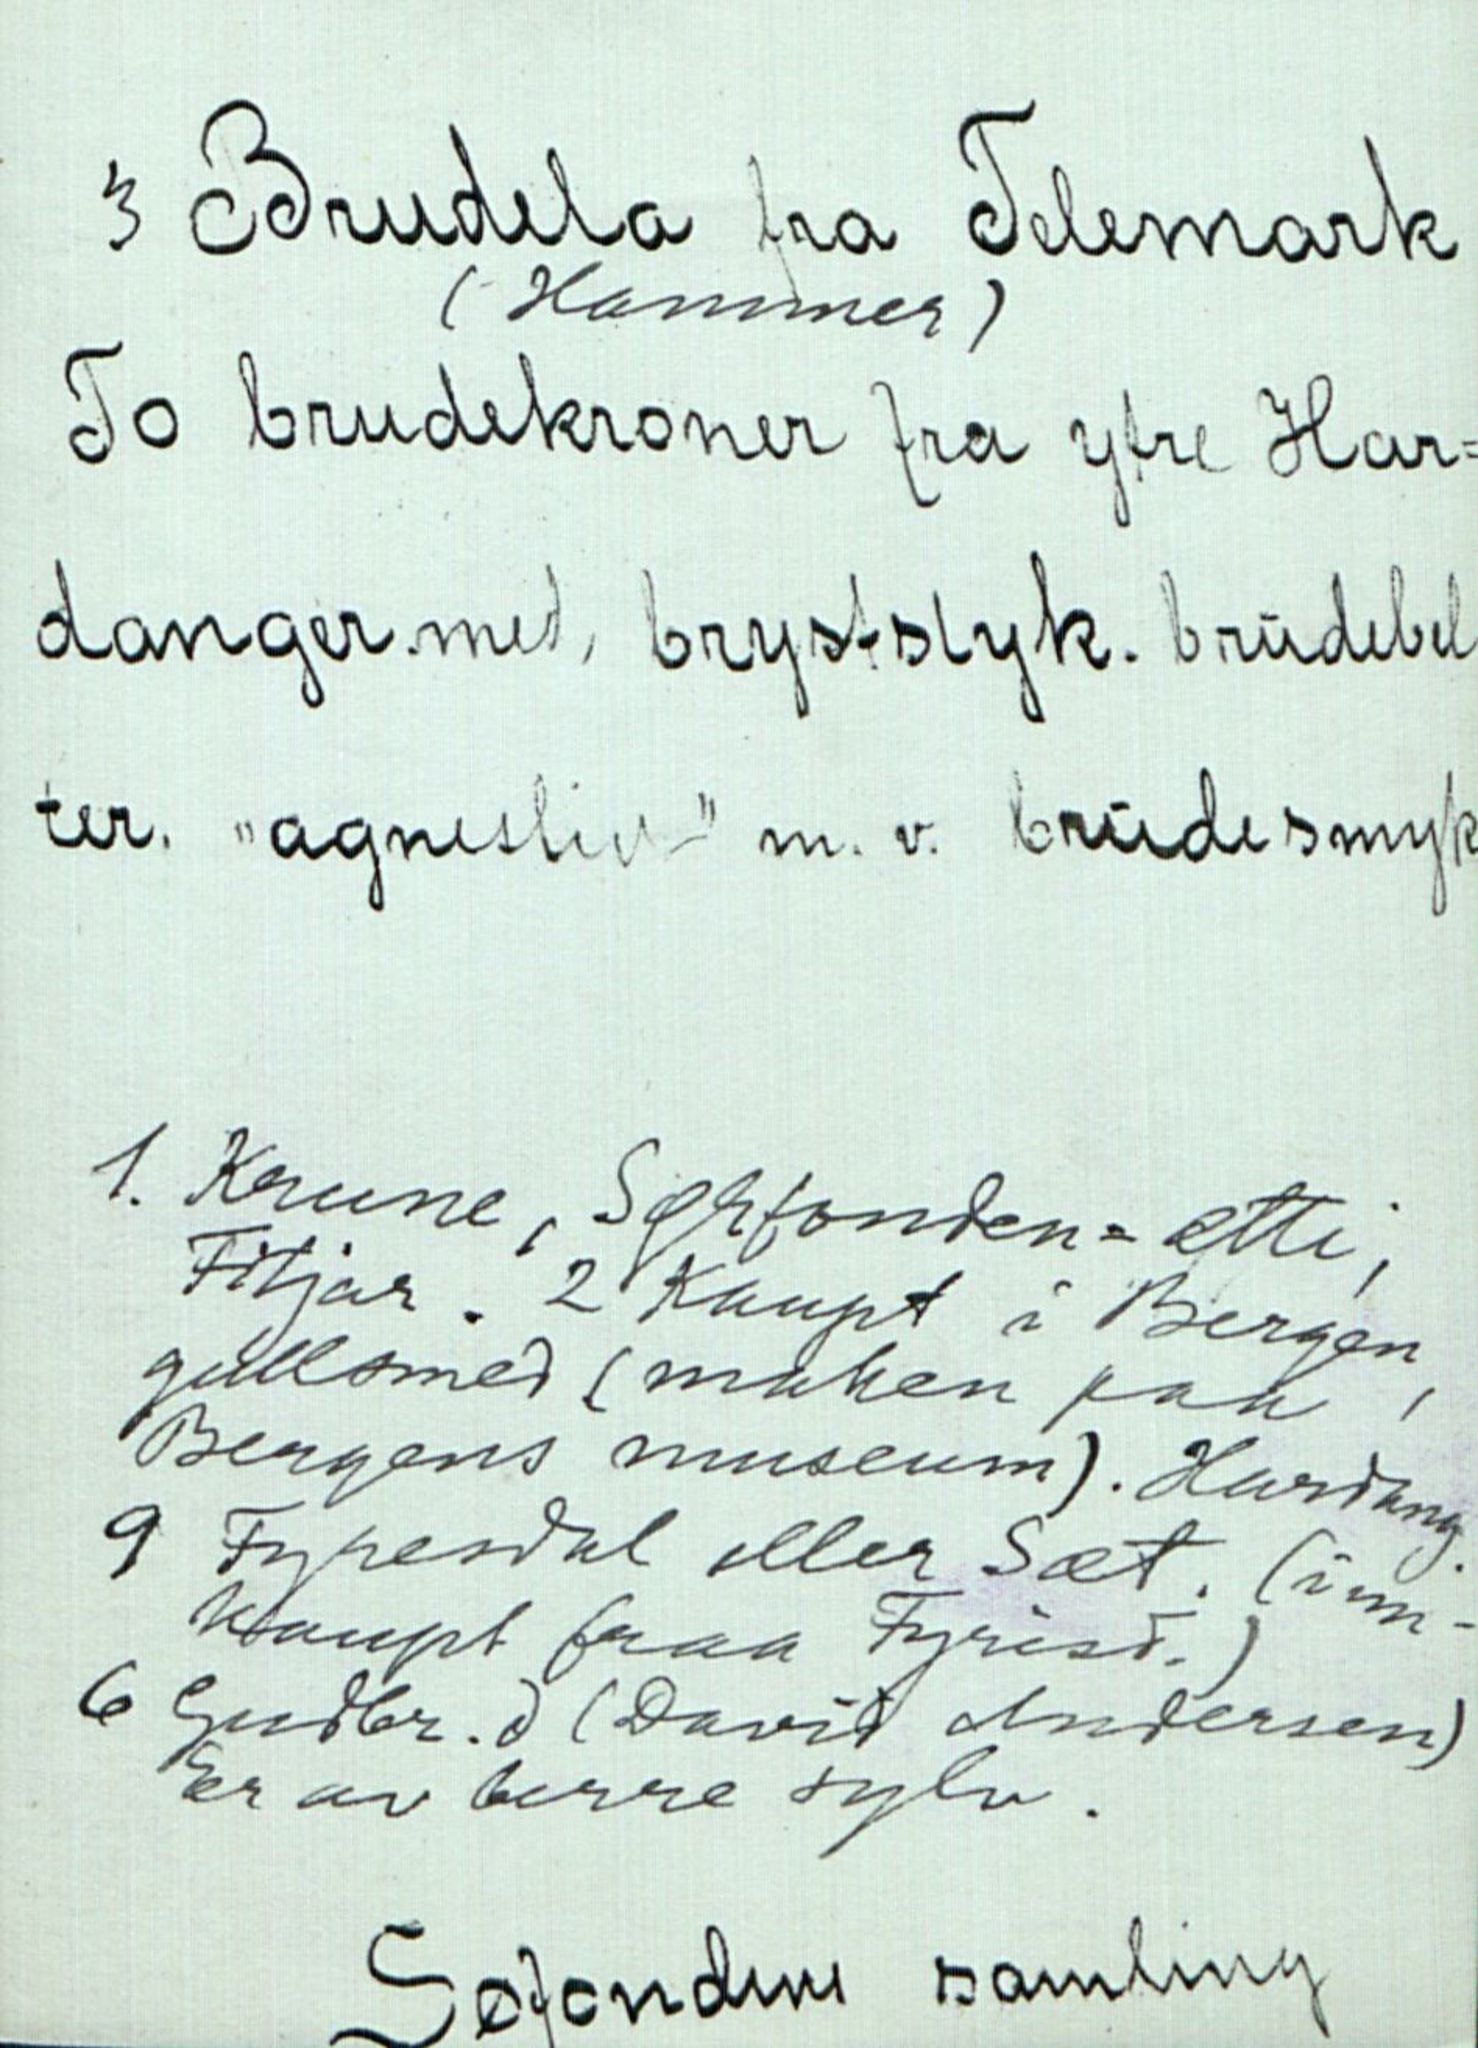 3 Brudela fra Telemark
(Hammer)
To brudekroner fra ytre Har=
danger. med, brystslyk. brŭdebel
ter. "agnesliv" m. v. brŭdesmyk
1. Krune, Sørfonden=ætti,
Fitjar. 2 Kaupt i Bergen,
gullsmed (maken paa
Bergens museum). Hardang.
9 Fyresdal eller Sæt. (inn-
kaupt fraa Fyrisd.)
6 Gudbr.d (David Andersen)
Er av berre sylv.
samling